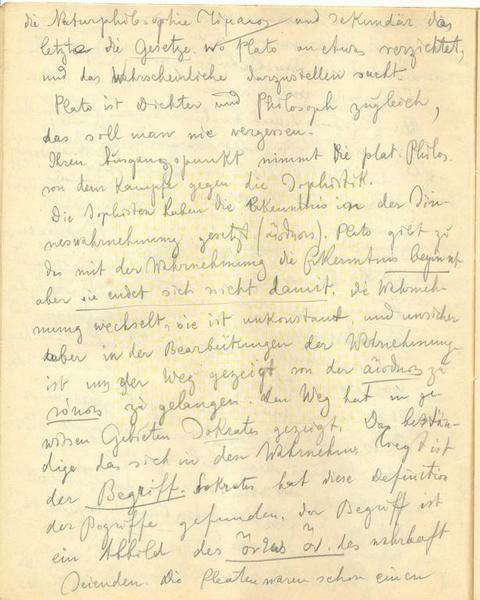 die Naturphilosophie Timaios und sekundär das
letzte die Gesetze. wo Plato an etwas verzichtet,
und das Wahrscheinliche darzustellen sucht.
Plato ist Dichter und Philosoph zugleich,
das soll man nie vergessen.
Ihren Ausgangspunkt nimmt die plat. Philos.
von dem Kampfe gegen die Sophistik.
Die Sophisten haben die Erkenntnis in der Sin-
neswahrnehmung gesetzt (αἴσθησις). Plato gibt zu
das mit der Wahrnehmung die Erkenntnis beginnt
aber sie endet sich nicht damit. Die Wahrneh-
mung wechselt, sie ist unkonstant, und unsicher
aber in der Bearbeitungen der Wahrnehmung
ist uns der Weg gezeigt von der αἴσθησις zu
νόησις zu gelangen. den Weg hat in ge-
wissen Gebieten Sokrates gezeigt. Das bestän-
dige das sich in den Wahrnehm. ist
der Begriff. Sokrates hat diese Definition
der Begriffe gefunden. der Begriff ist
ein Abbild des ὄντως ὄν. des wahrhaft
Seienden. Die waren schon einen